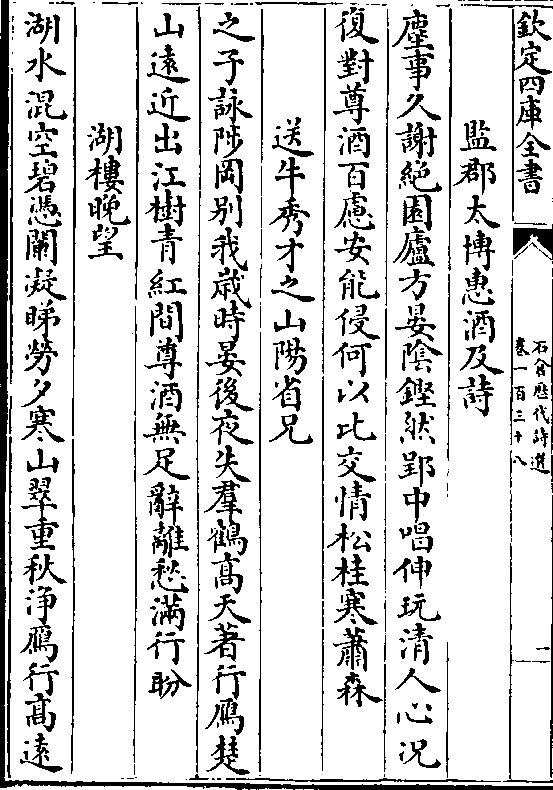 欽定四庫全書
石倉歷代詩選
卷一百三十八
一
監郡太博惠酒及詩
塵事久謝絶園廬方晏陰鏗然郢中唱伸玩清人心况
復對尊酒百慮安能侵何以比交情松桂寒蕭森
送牛秀才之山陽省兄
之子詠陟岡别我歲時晏後夜失羣鶴髙天著行鴈楚
山遠近出江樹青紅間尊酒無足辭離愁滿行盼
湖樓晚望
湖水混空碧慿闌凝睇勞夕寒山翠重秋浄鴈行髙逺